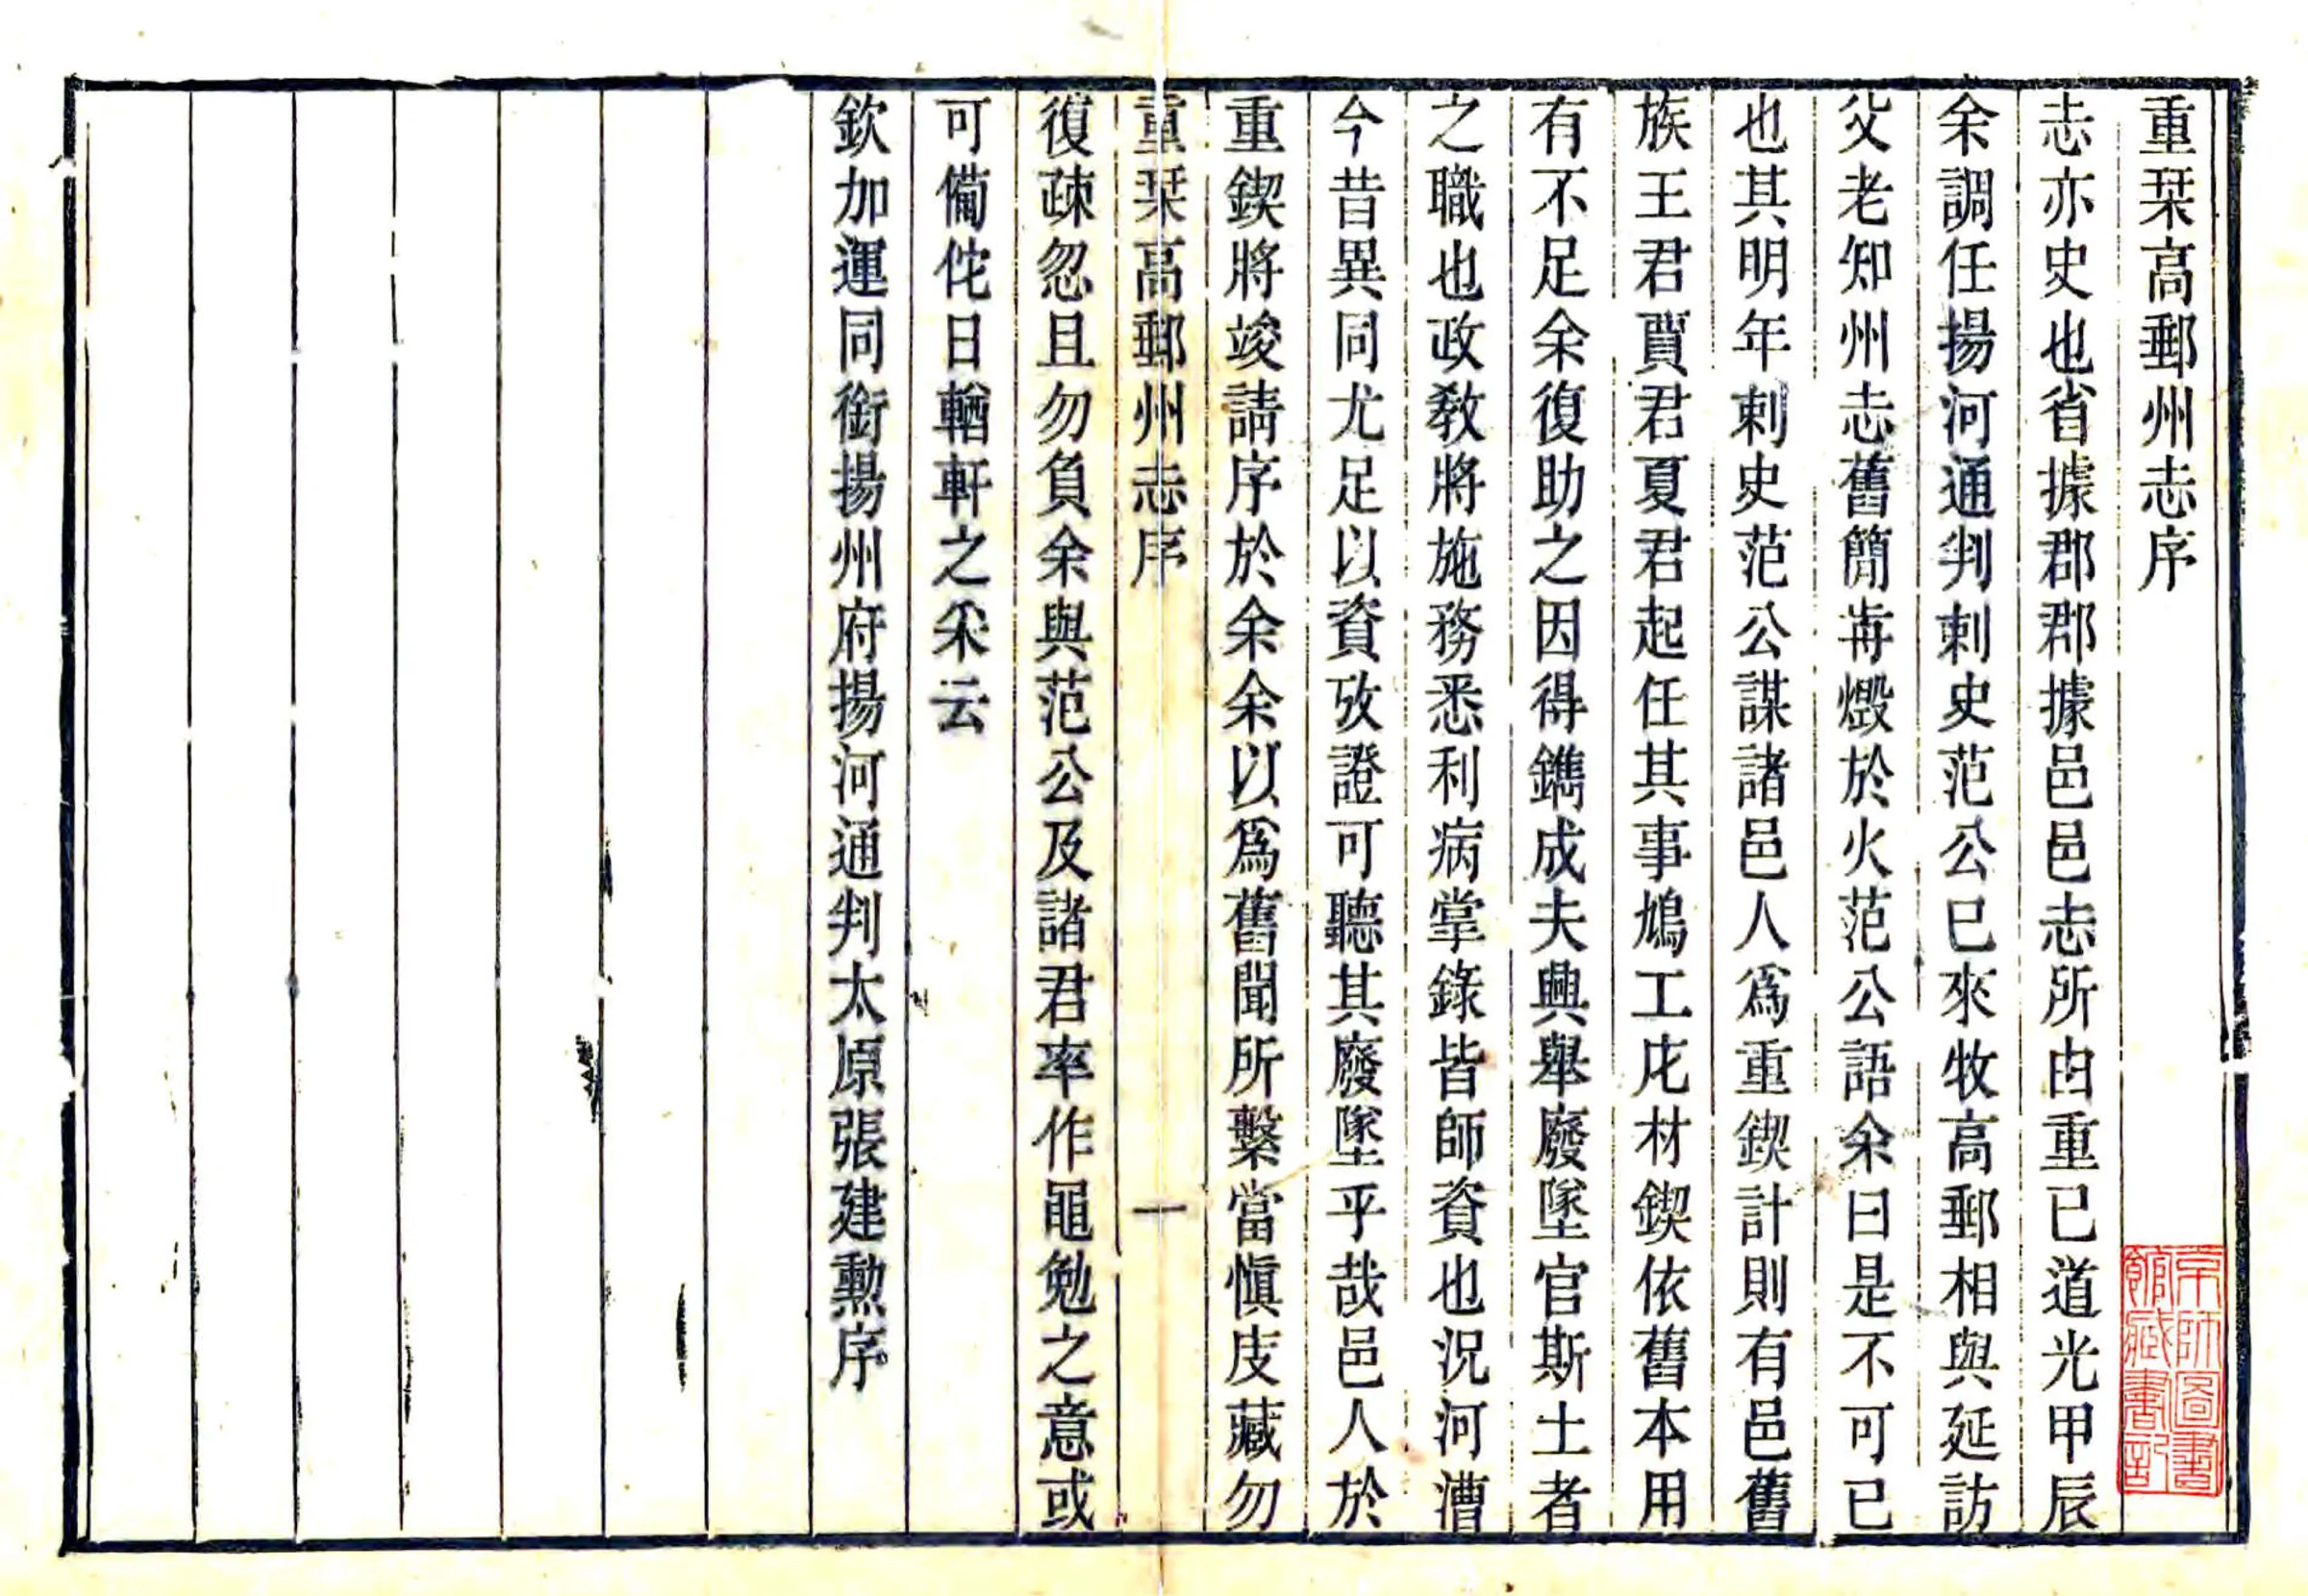 重栞高郵州志序
志亦史也省據郡郡據邑邑志所由重已道光甲辰
余調任揚河通判刺史范公已來牧高郵相與延訪
父老知州志舊簡歬燬於火范公語余曰是不可已
也其明年刺史范公謀諸邑人為重鍥計則有邑舊
族王君賈君夏君起任其事鳩工庀材鍥依舊本用
有不足余復助之因得鐫成夫興舉廢墜官斯土者
之職也政教將施務悉利病掌錄皆師資也況河漕
今昔異同尤足以資攷證可聽其廢墜乎哉邑人於
重鍥將竣請序於余余以為舊聞所繫當慎庋藏勿
重栞高郵州志序 一
復疎忽且勿負余與范公及諸君率作黽勉之意或
可備侘日輶軒之采云
欽加運同銜揚州府揚河通判太原張建勳序
京師圖書
館藏書記